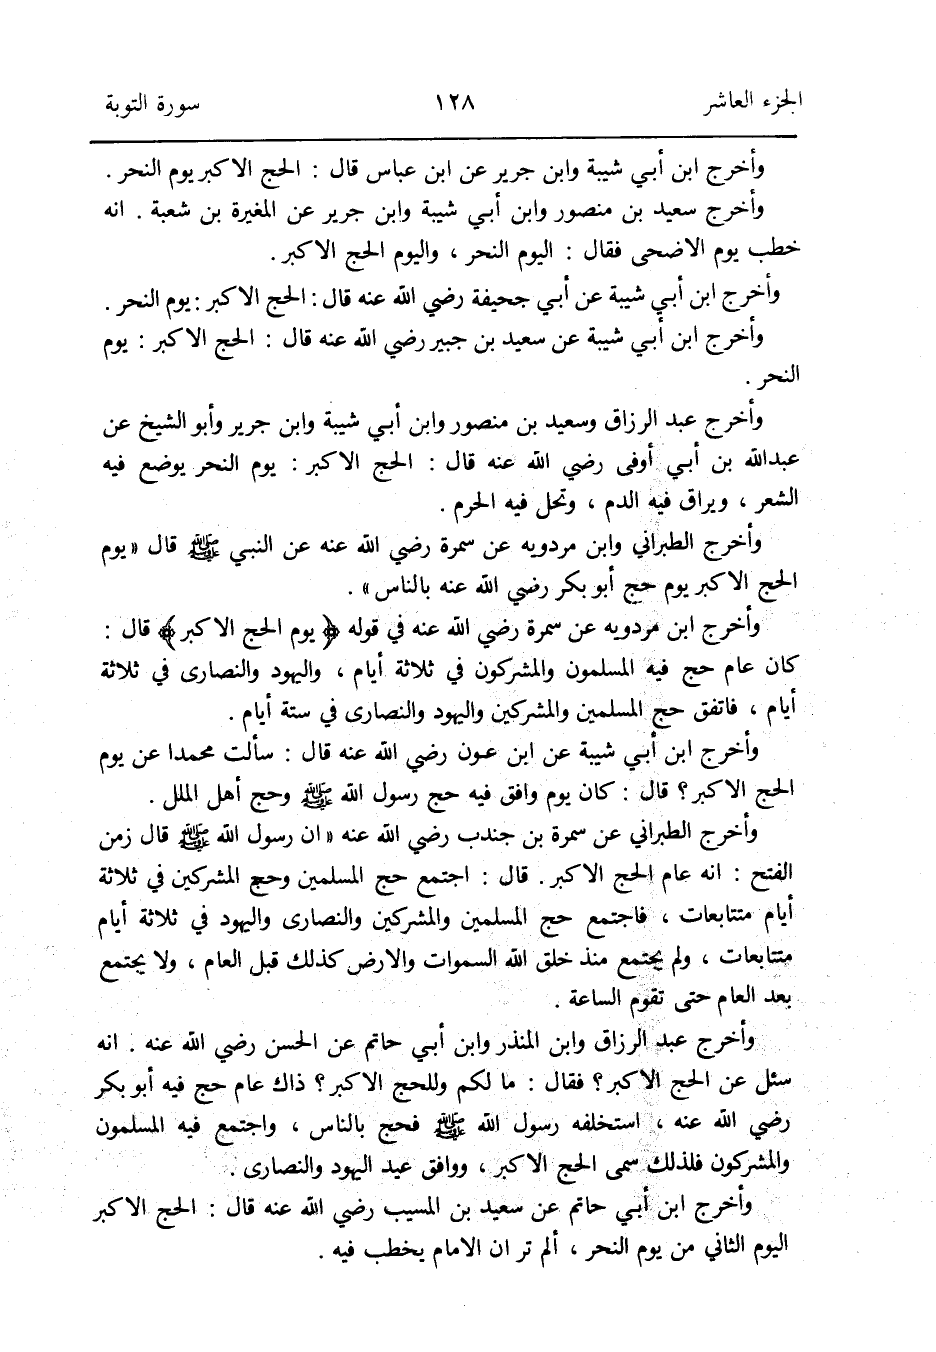 الجزء العاشر ١٢٨ سورة التوبة
وأخرج ابن أبي شيبة وابن جرير عن ابن عباس قال : الحج الاكبر يوم النحر .
وأخرج سعيد بن منصور وابن أبي شيبة وابن جرير عن المغيرة بن شعبة . انه
خطب يوم الاضحى فقال : اليوم النحر ، واليوم الحج الاكبر .
وأخرج ابن أبي شيبة عن أبي جحيفة رضي الله عنه قال : الحج الاكبر : يوم النحر .
وأخرج ابن أبي شيبة عن سعيد بن جبير رضي الله عنه قال : الحج الاكبر : يوم
النحر .
وأخرج عبد الرزاق وسعيد بن منصور وابن أبي شيبة وابن جرير وأبو الشيخ عن
عبدالله بن أبي أوفى رضي الله عنه قال : الحج الاكبر : يوم النحر يوضع فيه
الشعر ، ويراق فيه الدم ، وتحل فيه الحرم .
وأخرج الطبراني وابن مردويه عن سمرة رضي الله عنه عن النبي ﷺ قال « يوم
الحج الاكبر يوم حج أبو بكر رضي الله عنه بالناس » .
وأخرج ابن مردويه عن سمرة رضي الله عنه في قوله ﴿ يوم الحج الاكبر ﴾ قال :
كان عام حج فيه المسلمون والمشركون في ثلاثة أيام ، واليهود والنصارى في ثلاثة
أيام ، فاتفق حج المسلمين والمشركين واليهود والنصارى في ستة أيام .
وأخرج ابن أبي شيبة عن ابن عون رضي الله عنه قال : سألت محمدا عن يوم
الحج الاكبر ؟ قال : كان يوم وافق فيه حج رسول الله ﷺ وحج أهل الملل .
وأخرج الطبراني عن سمرة بن جندب رضي الله عنه « ان رسول الله ﷺ قال زمن
الفتح : انه عام الحج الاكبر . قال : اجتمع حج المسلمين وحج المشركين في ثلاثة
أيام متتابعات ، فاجتمع حج المسلمين والمشركين والنصارى واليهود في ثلاثة أيام
متتابعات ، ولم يجتمع منذ خلق الله السموات والارض كذلك قبل العام ، ولا يجتمع
بعد العام حتى تقوم الساعة .
وأخرج عبد الرزاق وابن المنذر وابن أبي حاتم عن الحسن رضي الله عنه . انه
سئل عن الحج الاكبر ؟ فقال : ما لكم وللحج الاكبر ؟ ذاك عام حج فيه أبو بكر
رضي الله عنه ، استخلفه رسول الله ﷺ فحج بالناس ، واجتمع فيه المسلمون
والمشركون فلذلك سمى الحج الاكبر ، ووافق عيد اليهود والنصارى .
وأخرج ابن أبي حاتم عن سعيد بن المسيب رضي الله عنه قال : الحج الاكبر
اليوم الثاني من يوم النحر ، ألم تر ان الامام يخطب فيه .